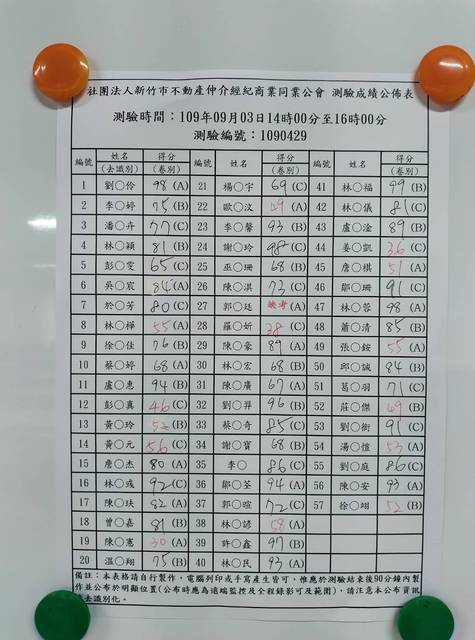 社團法人新竹市不動產仲介經紀商業同業公會 測驗成績公佈表
測驗時間：109年09月03日14時00分至16時00分
測驗編號：1090429
編號 姓名(去識別) 得分(卷別) 編號 姓名(去識別) 得分(卷別) 編號 姓名(去識別) 得分(卷別)
1 劉○伶 98 (A) 21 楊○宇 69 (C) 41 林○福 99 (B)
2 李○婷 75 (B) 22 歐○汶 (A) 42 林○儀 81 (C)
3 潘○卉 77 (C) 23 李○馨 93 (B) 43 盧○淦 89 (B)
4 林○穎 81 (B) 24 謝○玲 98 (C) 44 姜○凱 36 (C)
5 彭○雯 65 (C) 25 巫○珊 68 (B) 45 詹○棋 51 (A)
6 吳○宸 84 (A) 26 陳○淇 73 (C) 46 鄒○珊 91 (C)
7 於○芳 80 (C) 27 郭○廷 缺考 (A) 47 林○蓉 98 (A)
8 林○樺 55 (A) 28 羅○妍 38 (C) 48 蕭○清 85 (B)
9 徐○佳 76 (B) 29 陳○豪 89 (A) 49 張○銨 55 (A)
10 蔡○婷 68 (A) 30 林○宏 68 (B) 50 邱○誠 84 (B)
11 盧○惠 94 (B) 31 陳○廣 67 (A) 51 葛○羽 71 (C)
12 彭○真 46 (C) 32 劉○羿 96 (B) 52 莊○傑 (B)
13 黃○玲 52 (B) 33 蔡○奇 85 (C) 53 劉○衛 91 (C)
14 黃○元 56 (C) 34 謝○寶 68 (B) 54 湯○愷 53 (A)
15 詹○杰 80 (A) 35 李○ 86 (C) 55 劉○庭 86 (C)
16 林○彧 92 (C) 36 鄒○荃 94 (A) 56 陳○安 93 (A)
17 陳○玞 82 (A) 37 郭○暄 72 (C) 57 徐○翊 52 (B)
18 曾○嘉 81 (B) 38 林○諺 58 (A)
19 陳○憲 30 (A) 39 許○鑫 97 (B)
20 溫○翔 75 (B) 40 林○民 93 (A)
備註：本表格請自行製作，電腦列印或手寫產生皆可，惟應於測驗結束後90分鐘內製
作並公布於明顯位置(公布時應為遠端監控及全程錄影可及範圍)，請注意本公布資訊
去識別化。